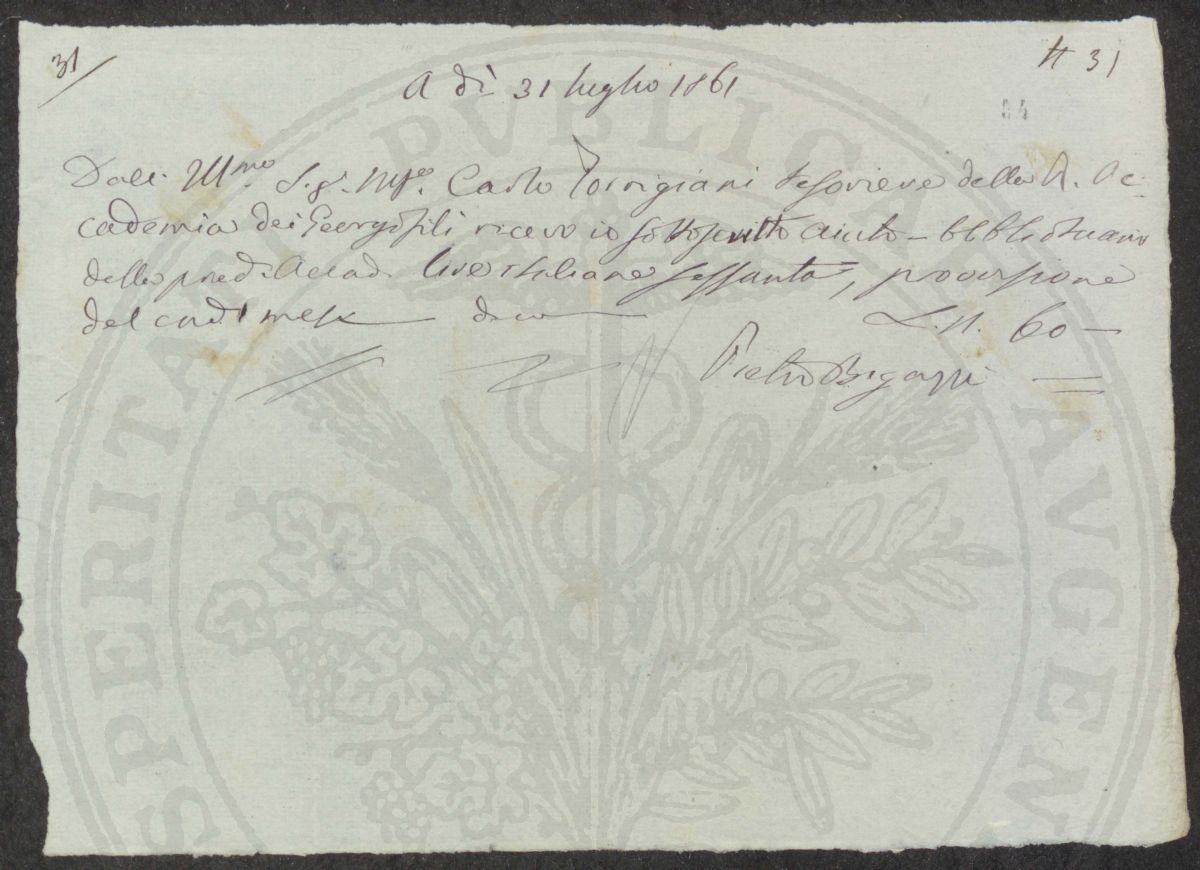 31
# 31
84
A dì 31 luglio 1861
Dall' Ill.mo S.r M.se Carlo Torrigiani Tesoriere della R. Ac-
cademia dei Georgofili ricevo io sottoscritto aiuto-bibliotecario
della pred.a Accad. Lire italiane sessanta, provvisione
del cad.e mese dico L.n. 60
Pietro Bigazzi
PROSPERITATI PVBLICAE AVGENDAE